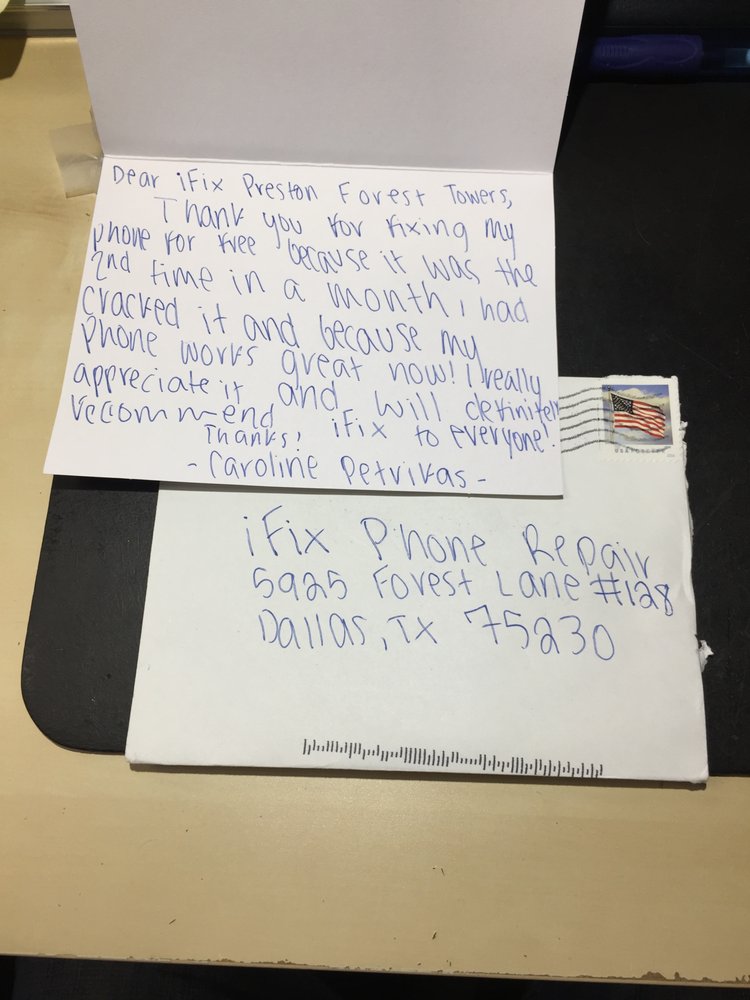 Dear iFix Preston Forest Towers,
Thank you for fixing my
phone for free because it was the
2nd time in a month i had
cracked it and because my
phone works great now! I really
appreciate it and will definitely
recommend iFix to everyone!
Thanks!
-Caroline Petrikas-
USA FOREVER
iFix Phone Repair
5925 Forest Lane #128
Dallas, TX 75230